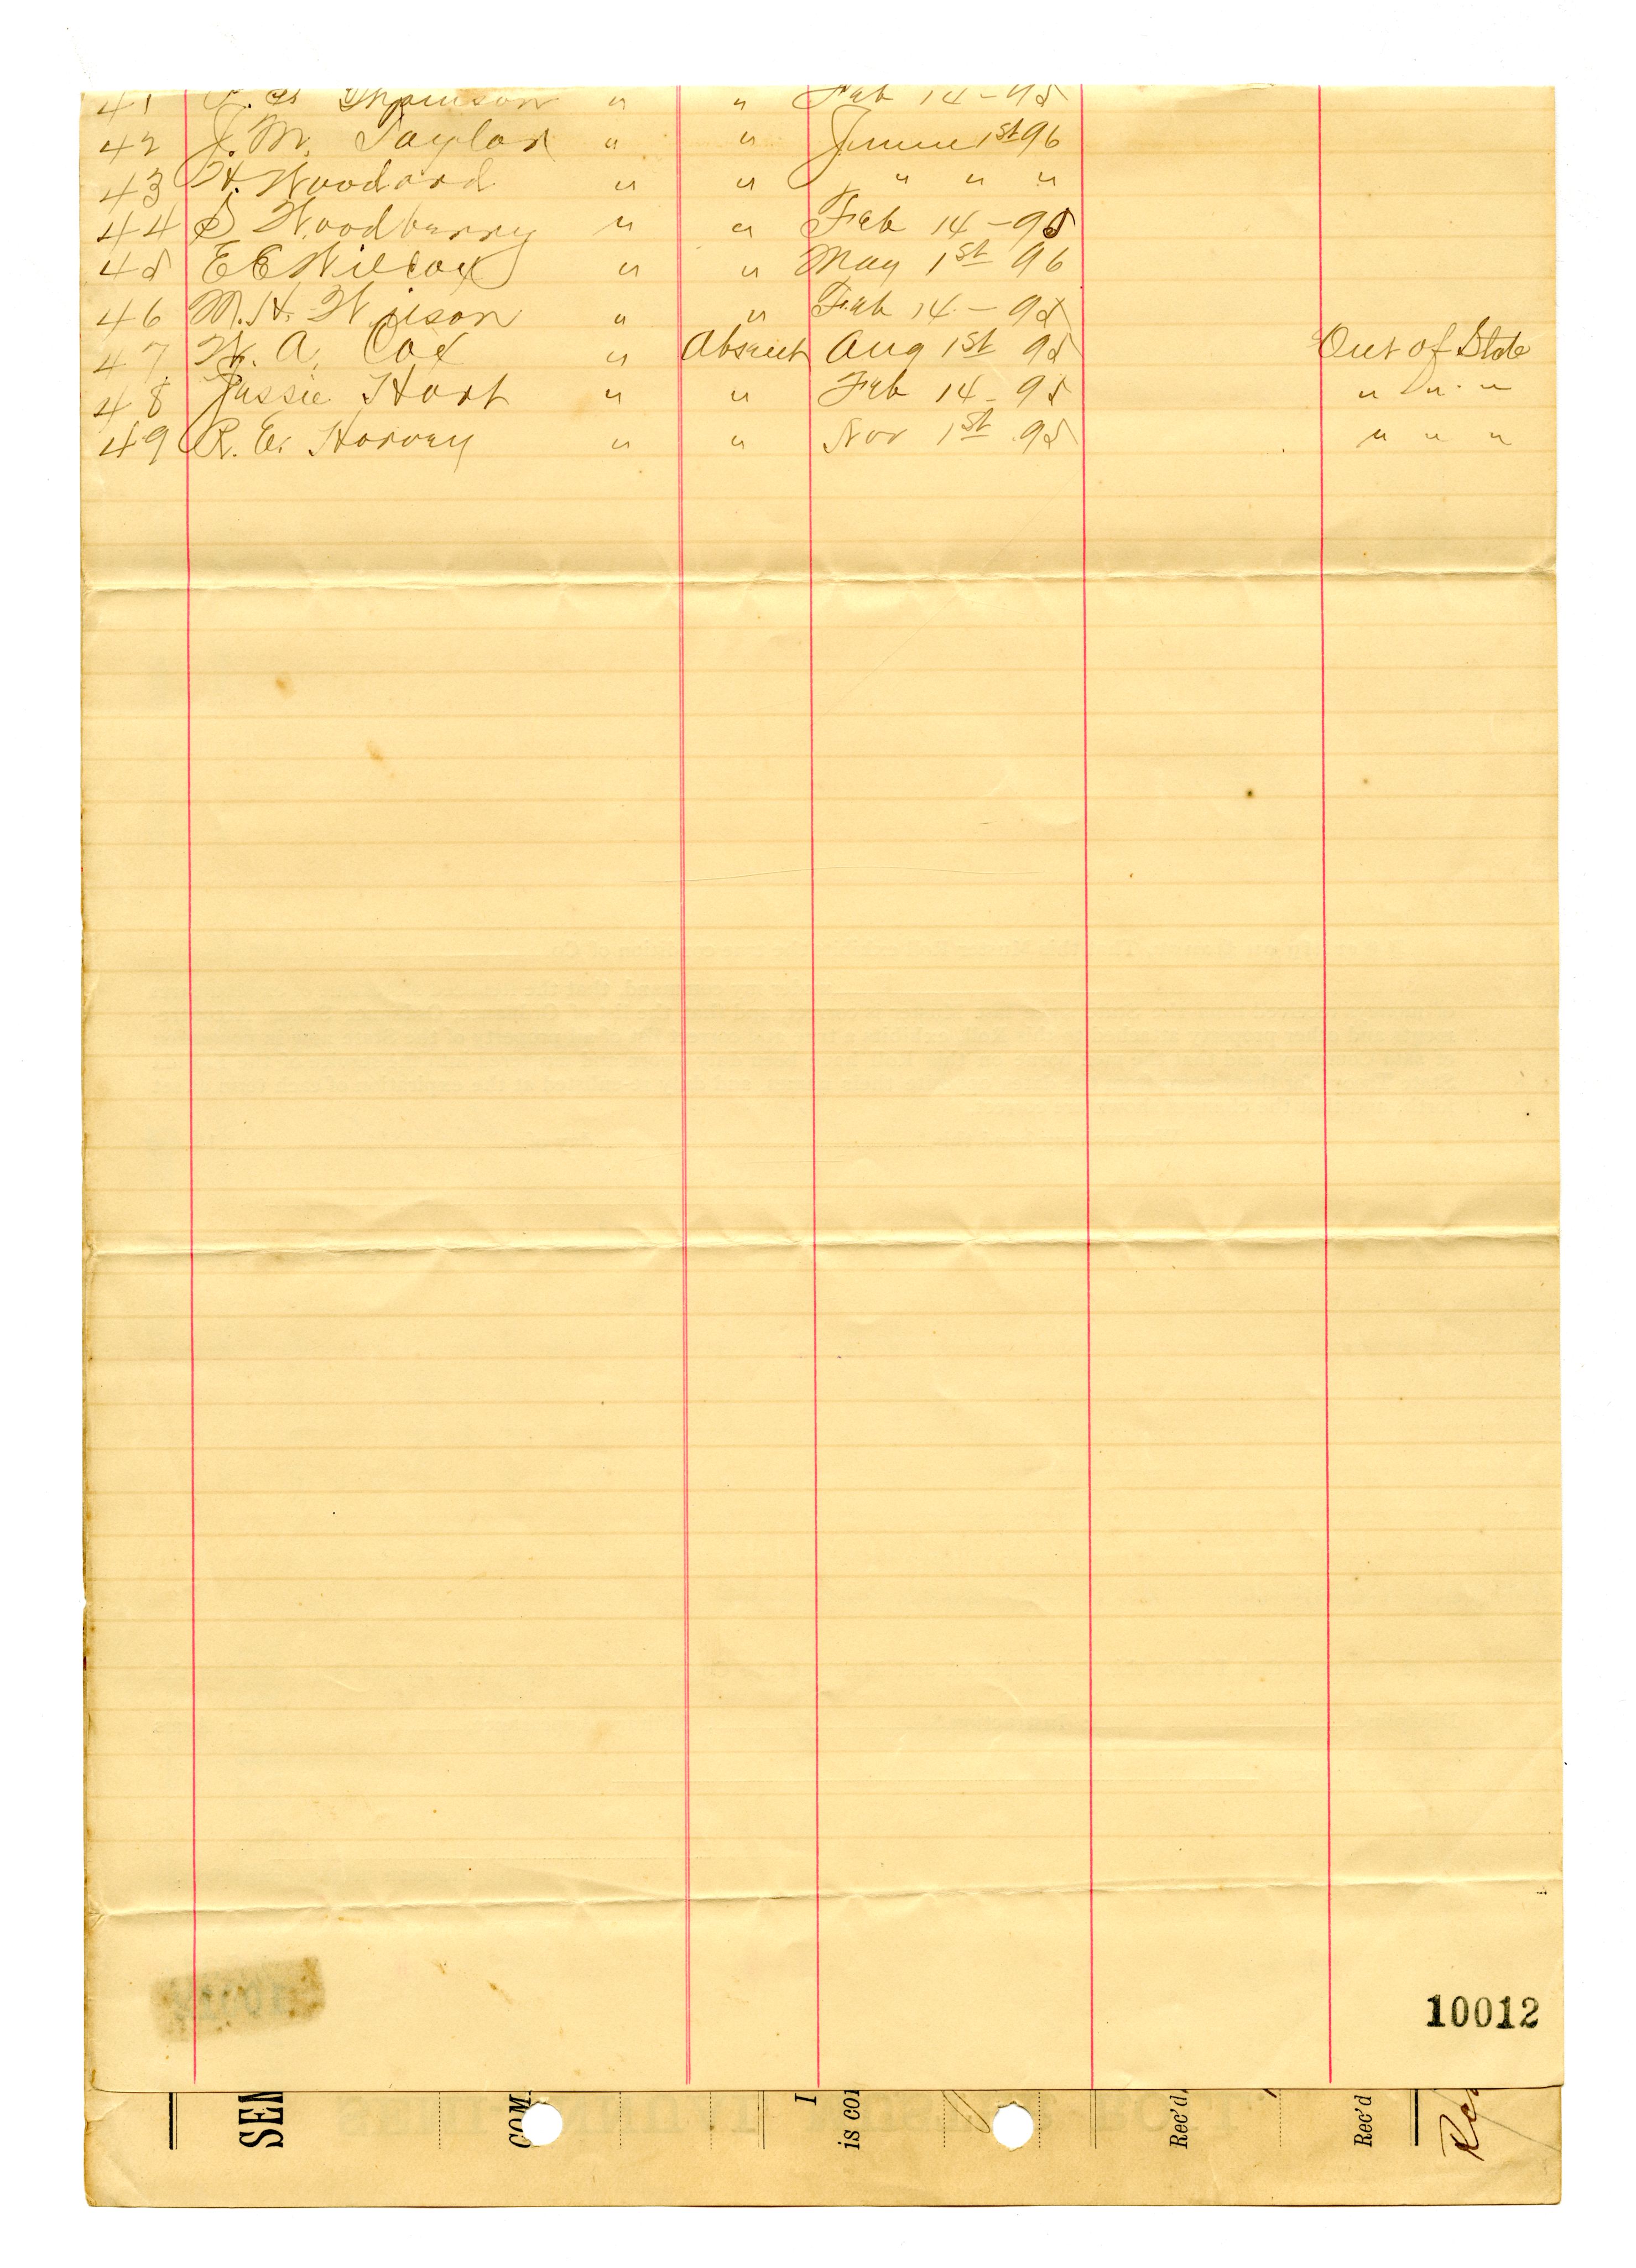 41 Thomison " " Feb 14 - 95
42 J. M. Taylor " " June 1st 96
43 H. Woodard " " " " "
44 S Woodberry " " Feb 14 - 95
45 E E Wilcox " " May 1st 96
46 M. H. Wilson " " Feb 14 - 95
47 W. A. Cox " Absent Aug 1st 95 Out of State
48 Jessie Hart " " Feb 14 - 95 " " "
49 R. E. Harvey " " Nov 1st 95 " " "
10012
SEM
COM.
I
is con
Rec'd,
Rec'd